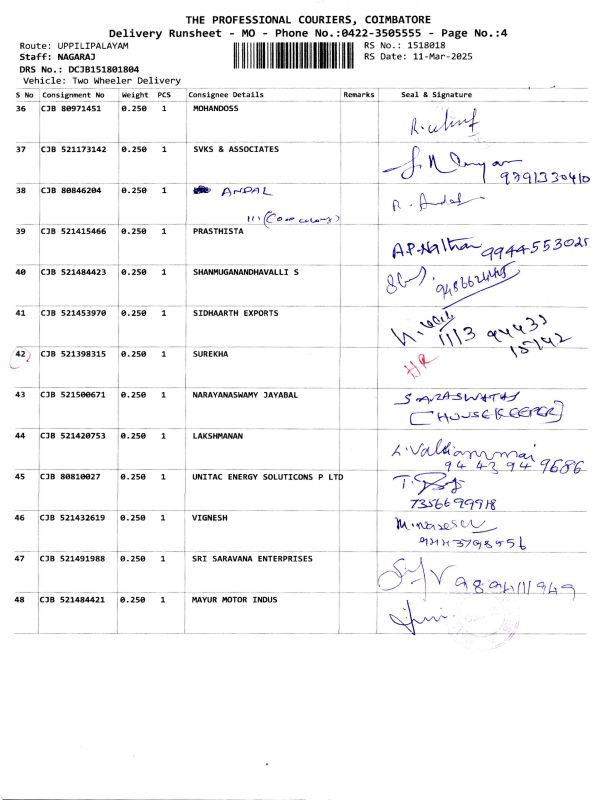 THE PROFESSIONAL COURIERS, COIMBATORE
Delivery Runsheet - MO - Phone No.:0422-3505555 - Page No.:4
Route: UPPILIPALAYAM RS No.: 1518018
Staff: NAGARAJ RS Date: 11-Mar-2025
DRS No.: DCJB151801804
Vehicle: Two Wheeler Delivery
S No Consignment No Weight PCS Consignee Details Remarks Seal & Signature
36 CJB 80971451 0.250 1 MOHANDOSS
37 CJB 521173142 0.250 1 SVKS & ASSOCIATES
9791330410
38 CJB 80846204 0.250 1 ANDAL
39 CJB 521415466 0.250 1 PRASTHISTA
A.P.Nathan 9944553025
40 CJB 521484423 0.250 1 SHANMUGANANDHAVALLI S
41 CJB 521453970 0.250 1 SIDHAARTH EXPORTS
42 CJB 521398315 0.250 1 SUREKHA
HR
43 CJB 521500671 0.250 1 NARAYANASWAMY JAYABAL
SARASWATHY
[HOUSEKEEPER]
44 CJB 521420753 0.250 1 LAKSHMANAN
94 43 94 9686
45 CJB 80810027 0.250 1 UNITAC ENERGY SOLUTICONS P LTD
7356699918
46 CJB 521432619 0.250 1 VIGNESH
47 CJB 521491988 0.250 1 SRI SARAVANA ENTERPRISES
48 CJB 521484421 0.250 1 MAYUR MOTOR INDUS